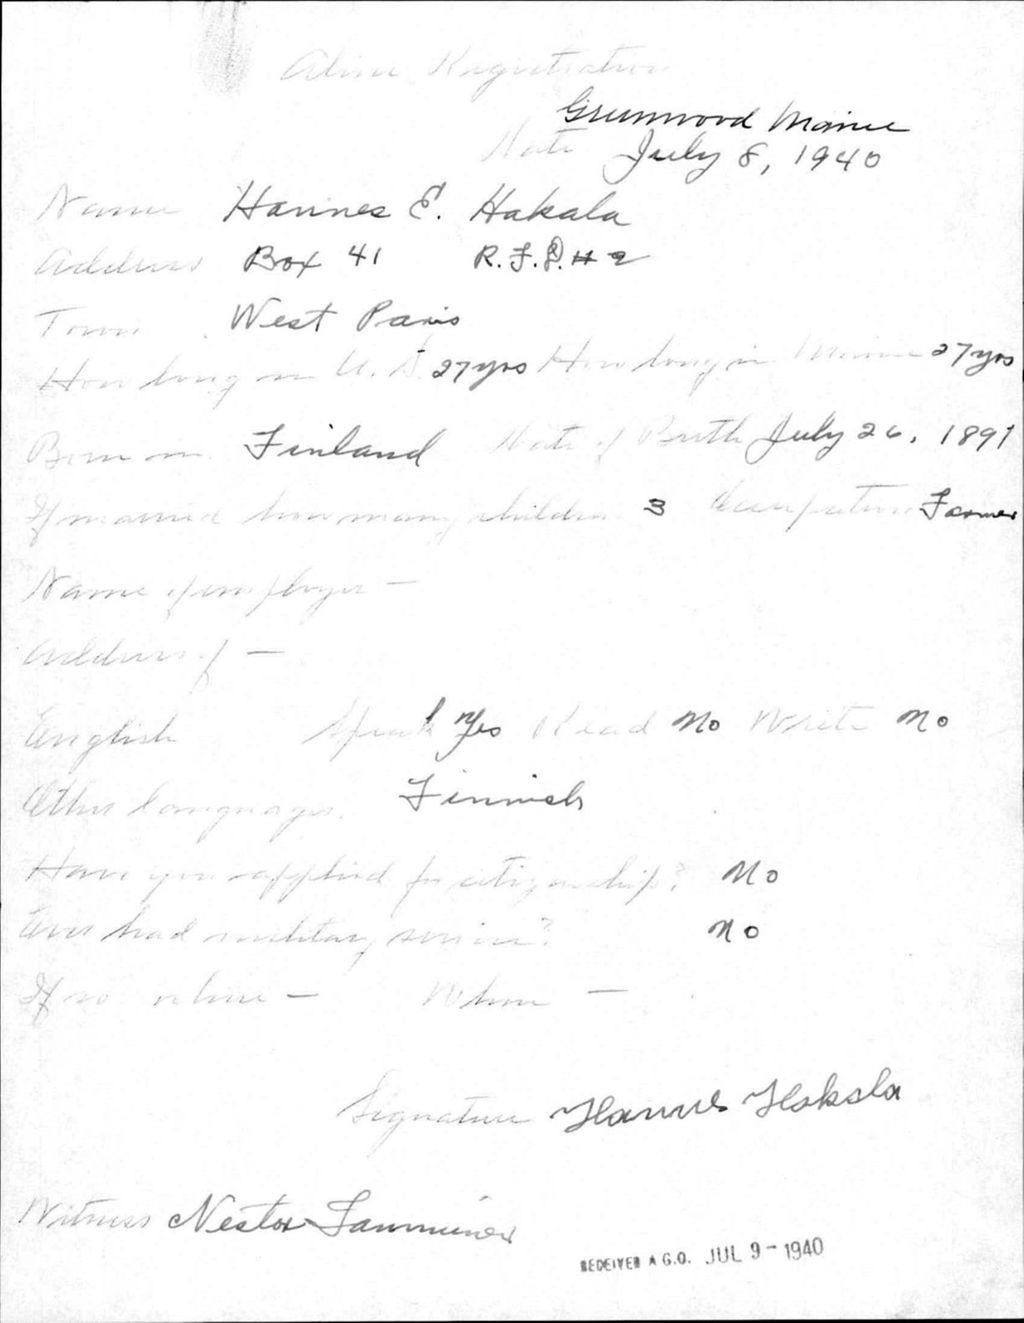 Alien Registration
Greenwood Maine
Date July 8, 1940
Name Hannes E. Hakala
Address Box 41 R.F.D. # 2
Town West Paris
How long in U.S. 27 yrs How long in Maine 27 yrs
Born in Finland Date of Birth July 26, 1891
If married how many children 3 Occupation Farmer
Name of employer —
Address of —
English Speak Yes Read No Write No
Other languages. Finnish
Have you applied for citizenship? No
Ever had military service? No
If so where — When —
Signature Hannes Hakala
Witness Nestor
RECEIVED A.G.O. JUL 9 - 1940